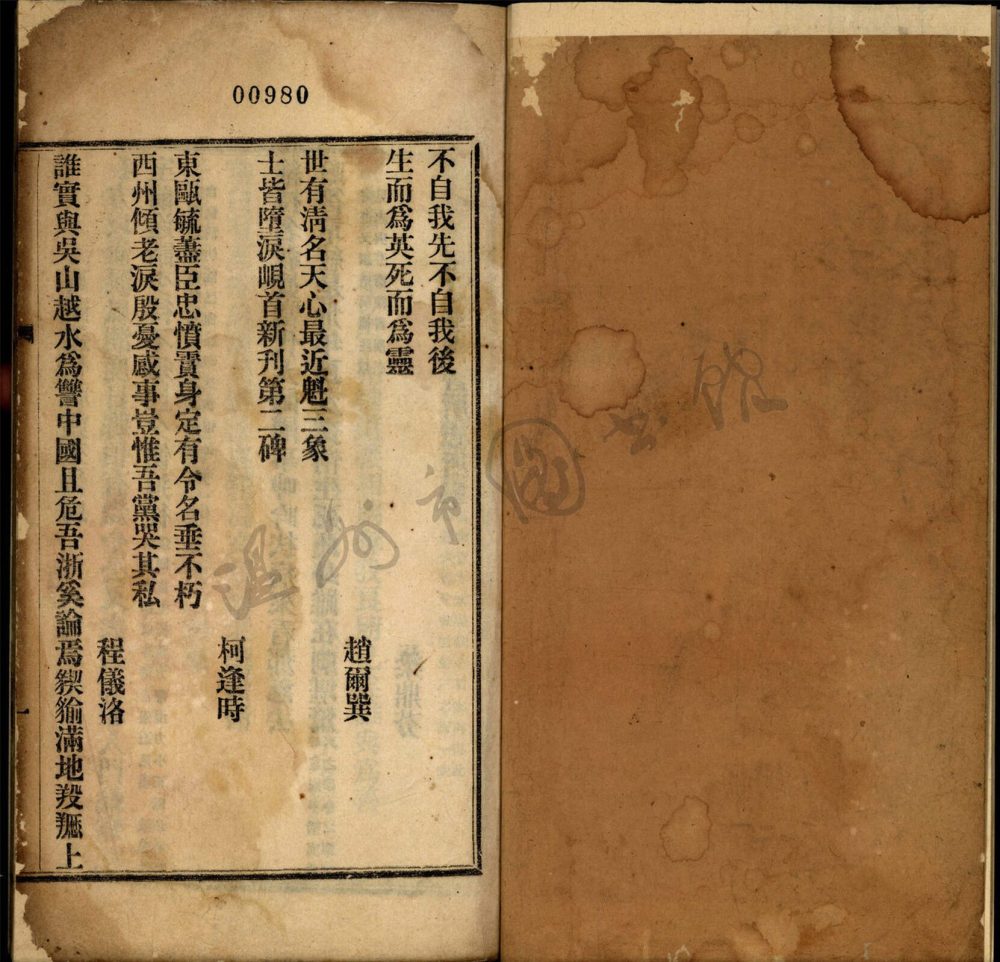 00980
不自我先不自我後
生而爲英死而爲靈
趙爾巽
世有淸名天心最近魁三象
士皆墮淚峴首新刊第二碑
柯逢時
東甌毓藎臣忠憤賫身定有令名垂不朽
西州傾老淚殷憂感事豈惟吾黨哭其私
程儀洛
誰實與吳山越水爲讐中國且危吾浙奚論焉猰貐滿地羖䍽上
溫州市圖書館